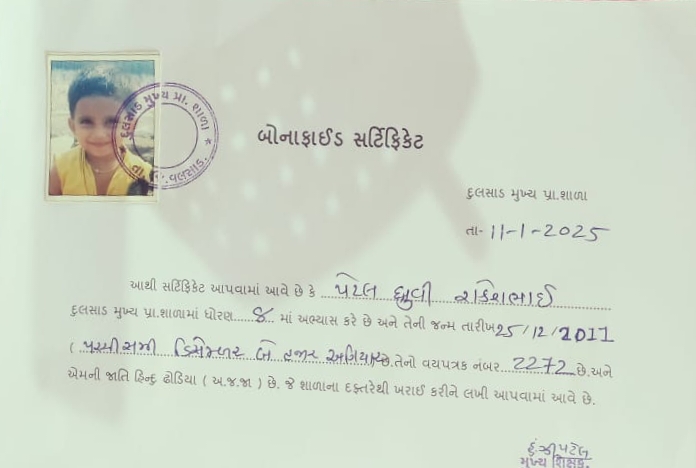 દુલસાડ મુખ્ય પ્રા. શાળા
તા. જિ. વલસાડ.
બોનાફાઈડ સર્ટિફિકેટ
દુલસાડ મુખ્ય પ્રા.શાળા
તા- 11-1-2025
આથી સર્ટિફિકેટ આપવામાં આવે છે કે પટેલ ધ્રુવી રાકેશભાઈ
દુલસાડ મુખ્ય પ્રા.શાળામાં ધોરણ માં અભ્યાસ કરે છે અને તેની જન્મ તારીખ 25/12/2011
( પચ્ચીસમી ડિસેમ્બર બે હજાર અગિયાર છે.તેનો વયપત્રક નંબર 2272 છે.અને
એમની જાતિ હિન્દુ ઢોડિયા ( અ.જ.જા ) છે. જે શાળાના દફતરેથી ખરાઈ કરીને લખી આપવામાં આવે છે.
મુખ્ય શિક્ષક.